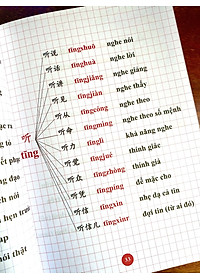 听说 tīngshuō nghe nói
听话 tīnghuà nghe lời
听讲 tīngjiǎng nghe giảng
听见 tīngjiàn nghe thấy
听从 tīngcóng nghe theo
听命 tīngmìng nghe theo số mệnh
听力 tīnglì khả năng nghe
听觉 tīngjué thính giác
听众 tīngzhòng thính giả
听凭 tīngpíng để mặc cho
听信 tīngxìn nhẹ dạ cả tin
听信儿 tīngxìnr đợi tin (từ ai đó)
听
tīng
33